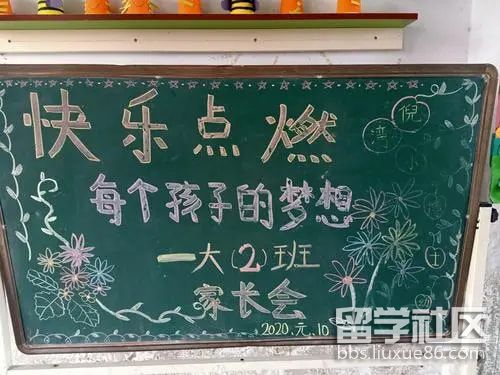 快乐点燃
每个孩子的梦想
一大(2)班
家长会
2020.元.10
倪
湾
小
留学社区
bbs.liuxue86.com